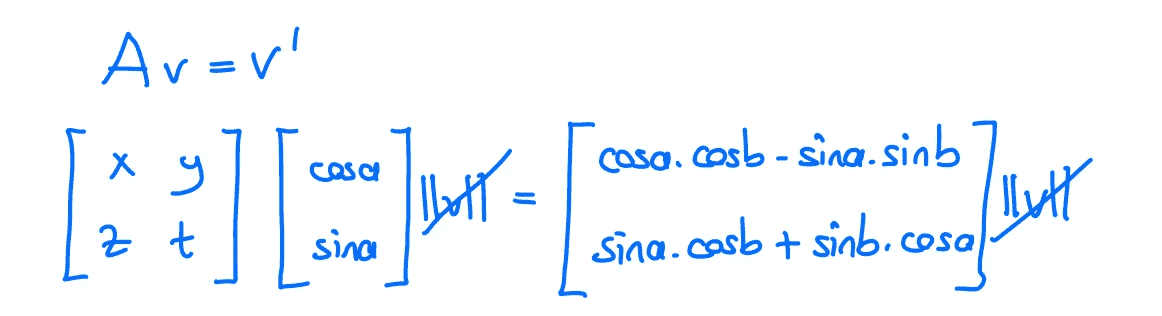 Av = v'
[x y z t] [cosa sina] ||v|| = [cosa.cosb - sina.sinb sina.cosb + sinb.cosa] ||v||